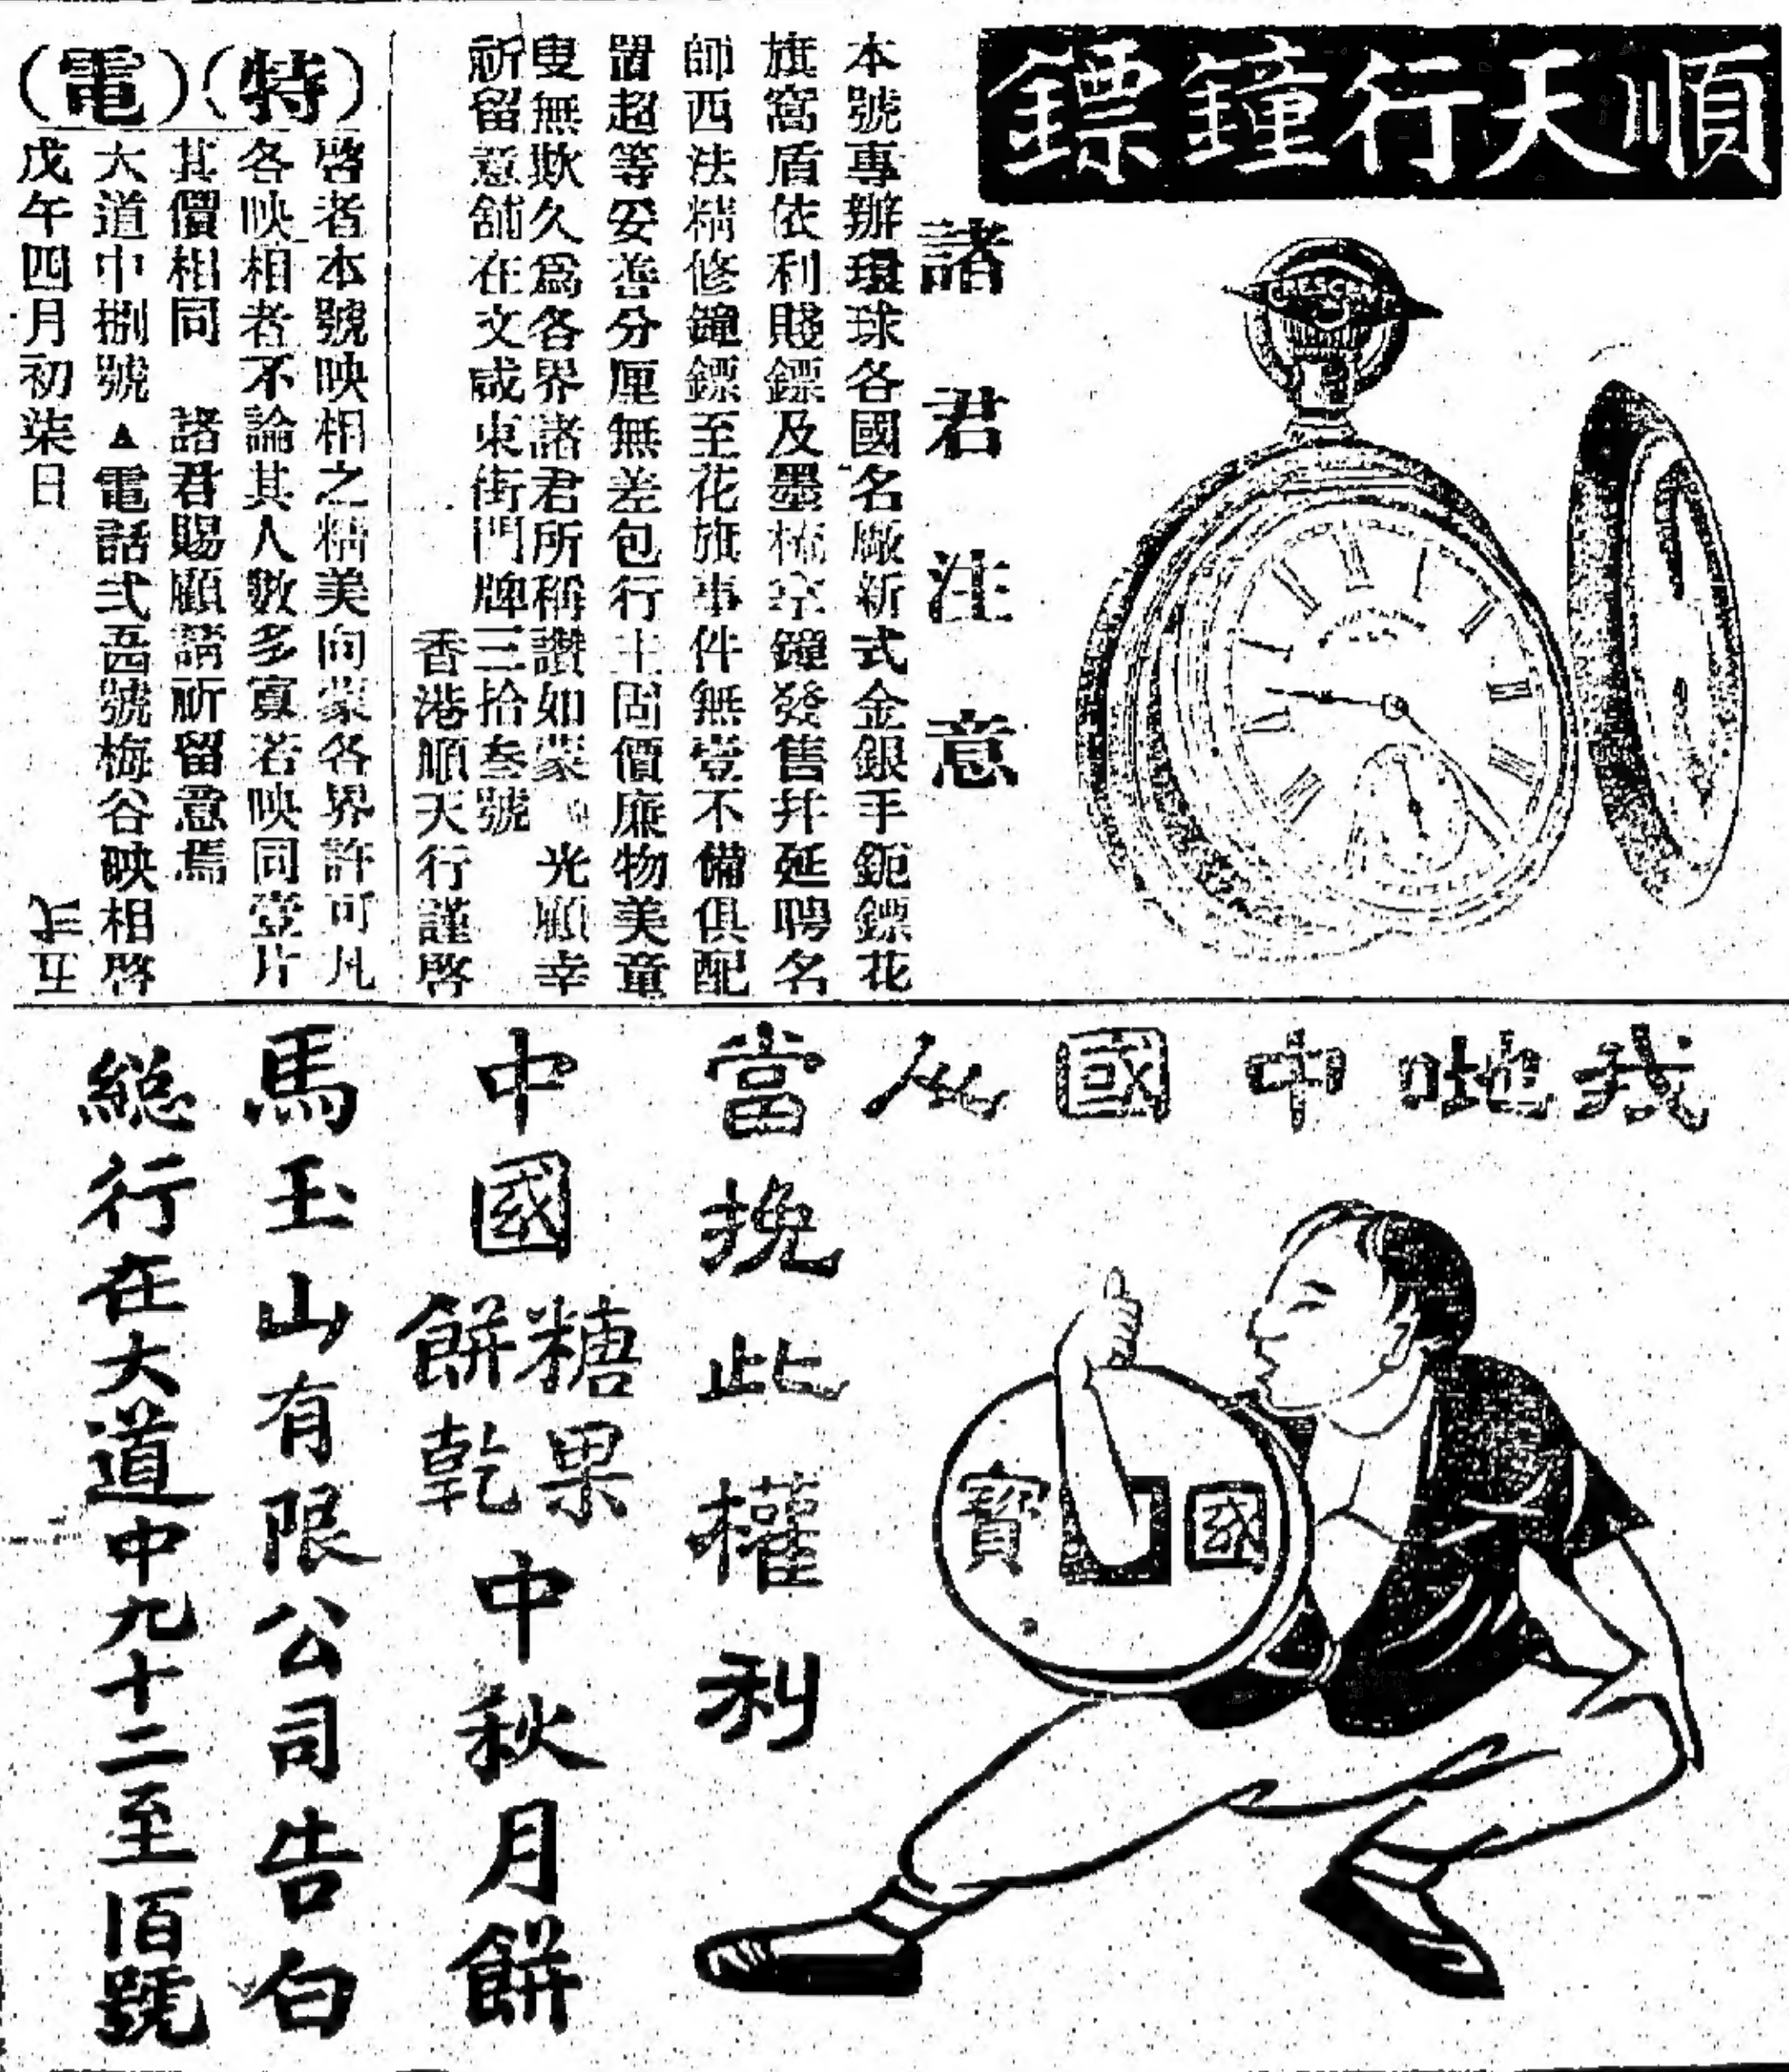 順天行鐘鏢
CRESCENT
諸君注意
本號專辦環球各國名廠新式金銀手鈪鏢花
旗窩盾依利賤鏢及墨梳空鐘發售并延聘名
師西法精修鐘鏢至花旗事件無壹不備俱配
置超等妥善分厘無差包行主固價廉物美童
叟無欺久爲各界諸君所稱讚如蒙 光顧幸
祈留意舖在文咸東街門牌三拾叁號
香港順天行謹啓
(特)(電)
啓者本號映相之精美向蒙各界許可凡
各映相者不論其人數多寡若映同壹片
其價相同 諸君賜顧請祈留意焉
大道中捌號▲電話弍五四號梅谷映相啓
戊午四月初柒日
我哋中國人
當挽此權利
國寶
中國糖果餅乾中秋月餅
馬玉山有限公司告白
総行在大道中九十二至佰號